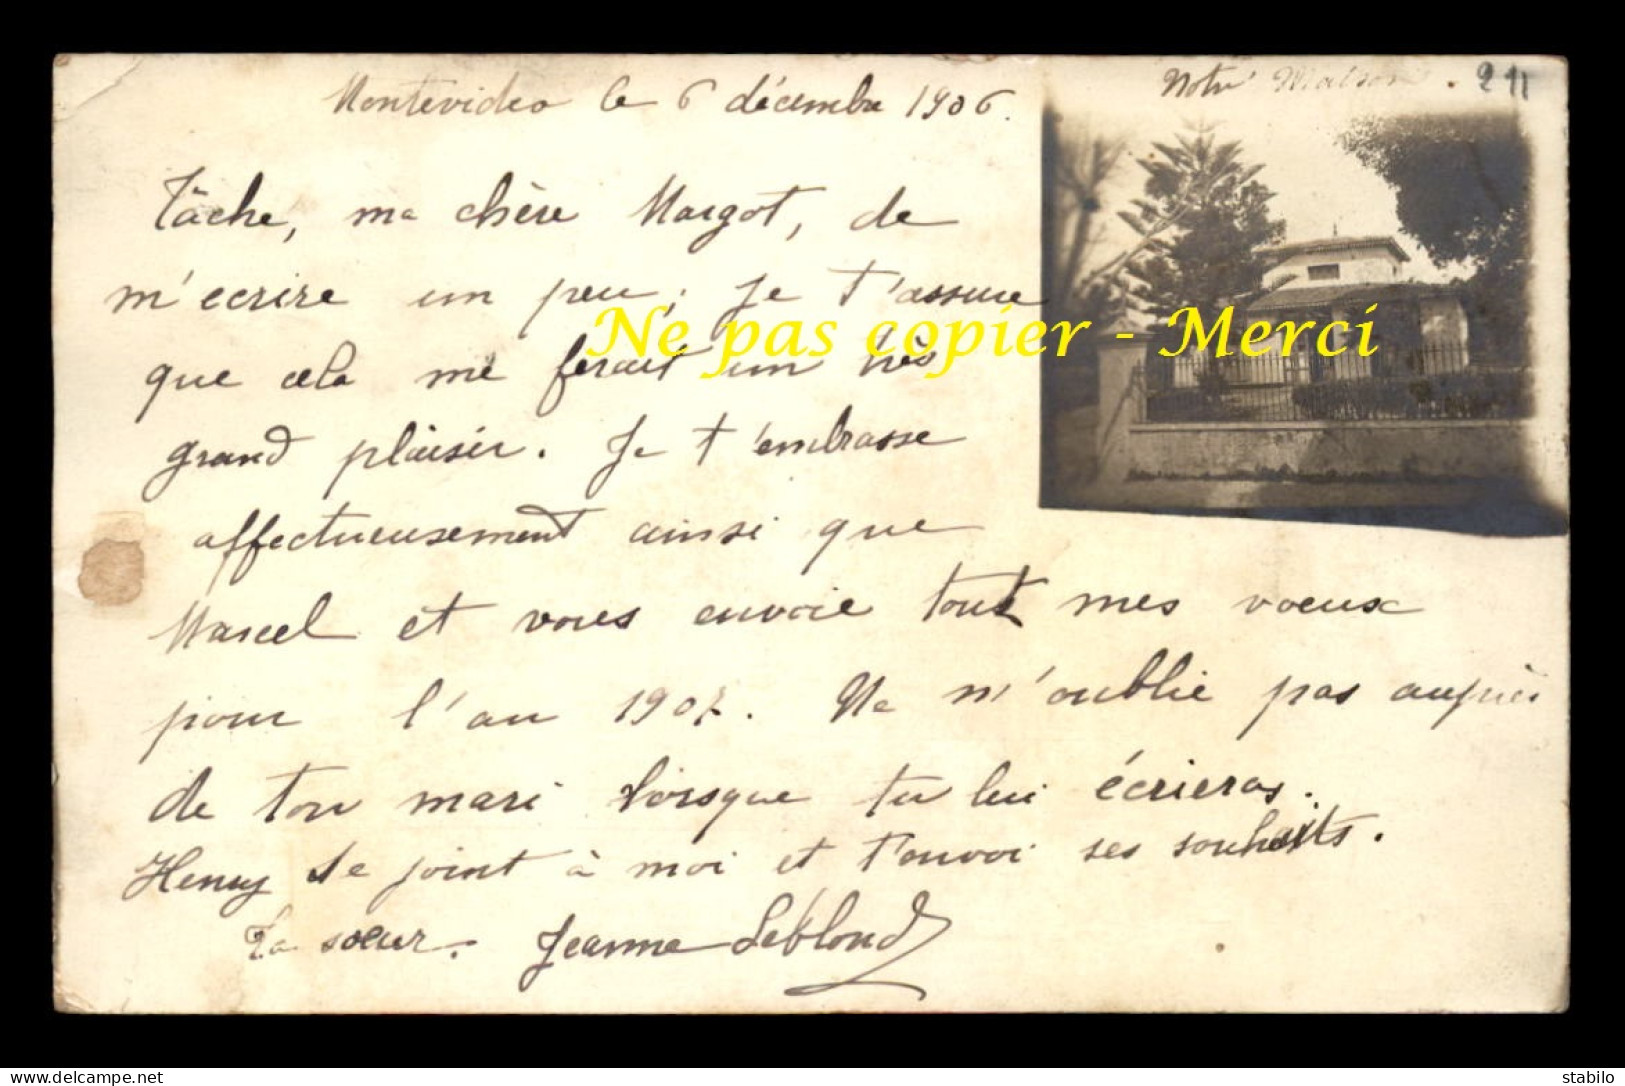 Montevideo le 6 décembre 1906.
Notre Maison. 211
Tâche, ma chère Margot, de
m'ecrire un peu; Je t'assure
que cela me ferait un très
grand plaisir. Je t'embrasse
affectueusement ainsi que
Marcel et vous envoie tout mes voeux
pour l'an 1907. Ne m'oublie pas auprès
de ton mari lorsque tu lui écrieras.
Henry se joint à moi et t'envoi ses souhaits.
Ta soeur. Jeanne Leblond
Ne pas copier - Merci
delcampe.net
stabilo